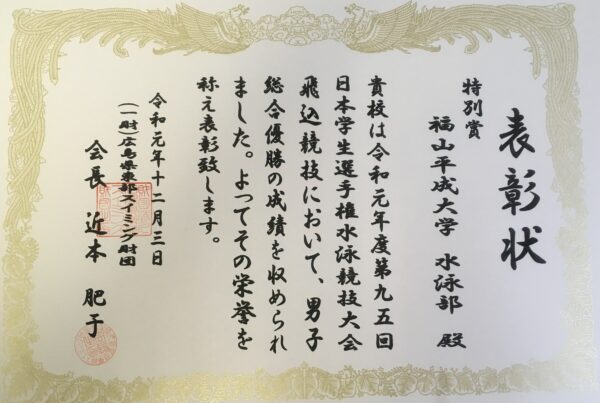 表彰状
特別賞
福山平成大学 水泳部 殿
貴校は令和元年度第九五回
日本学生選手権水泳競技大会
飛込競技において、男子
総合優勝の成績を収められ
ました。よってその栄誉を
称え表彰致します。
令和元年十二月三日
(一財)広島県東部スイミング財団
会長 近本 肥于